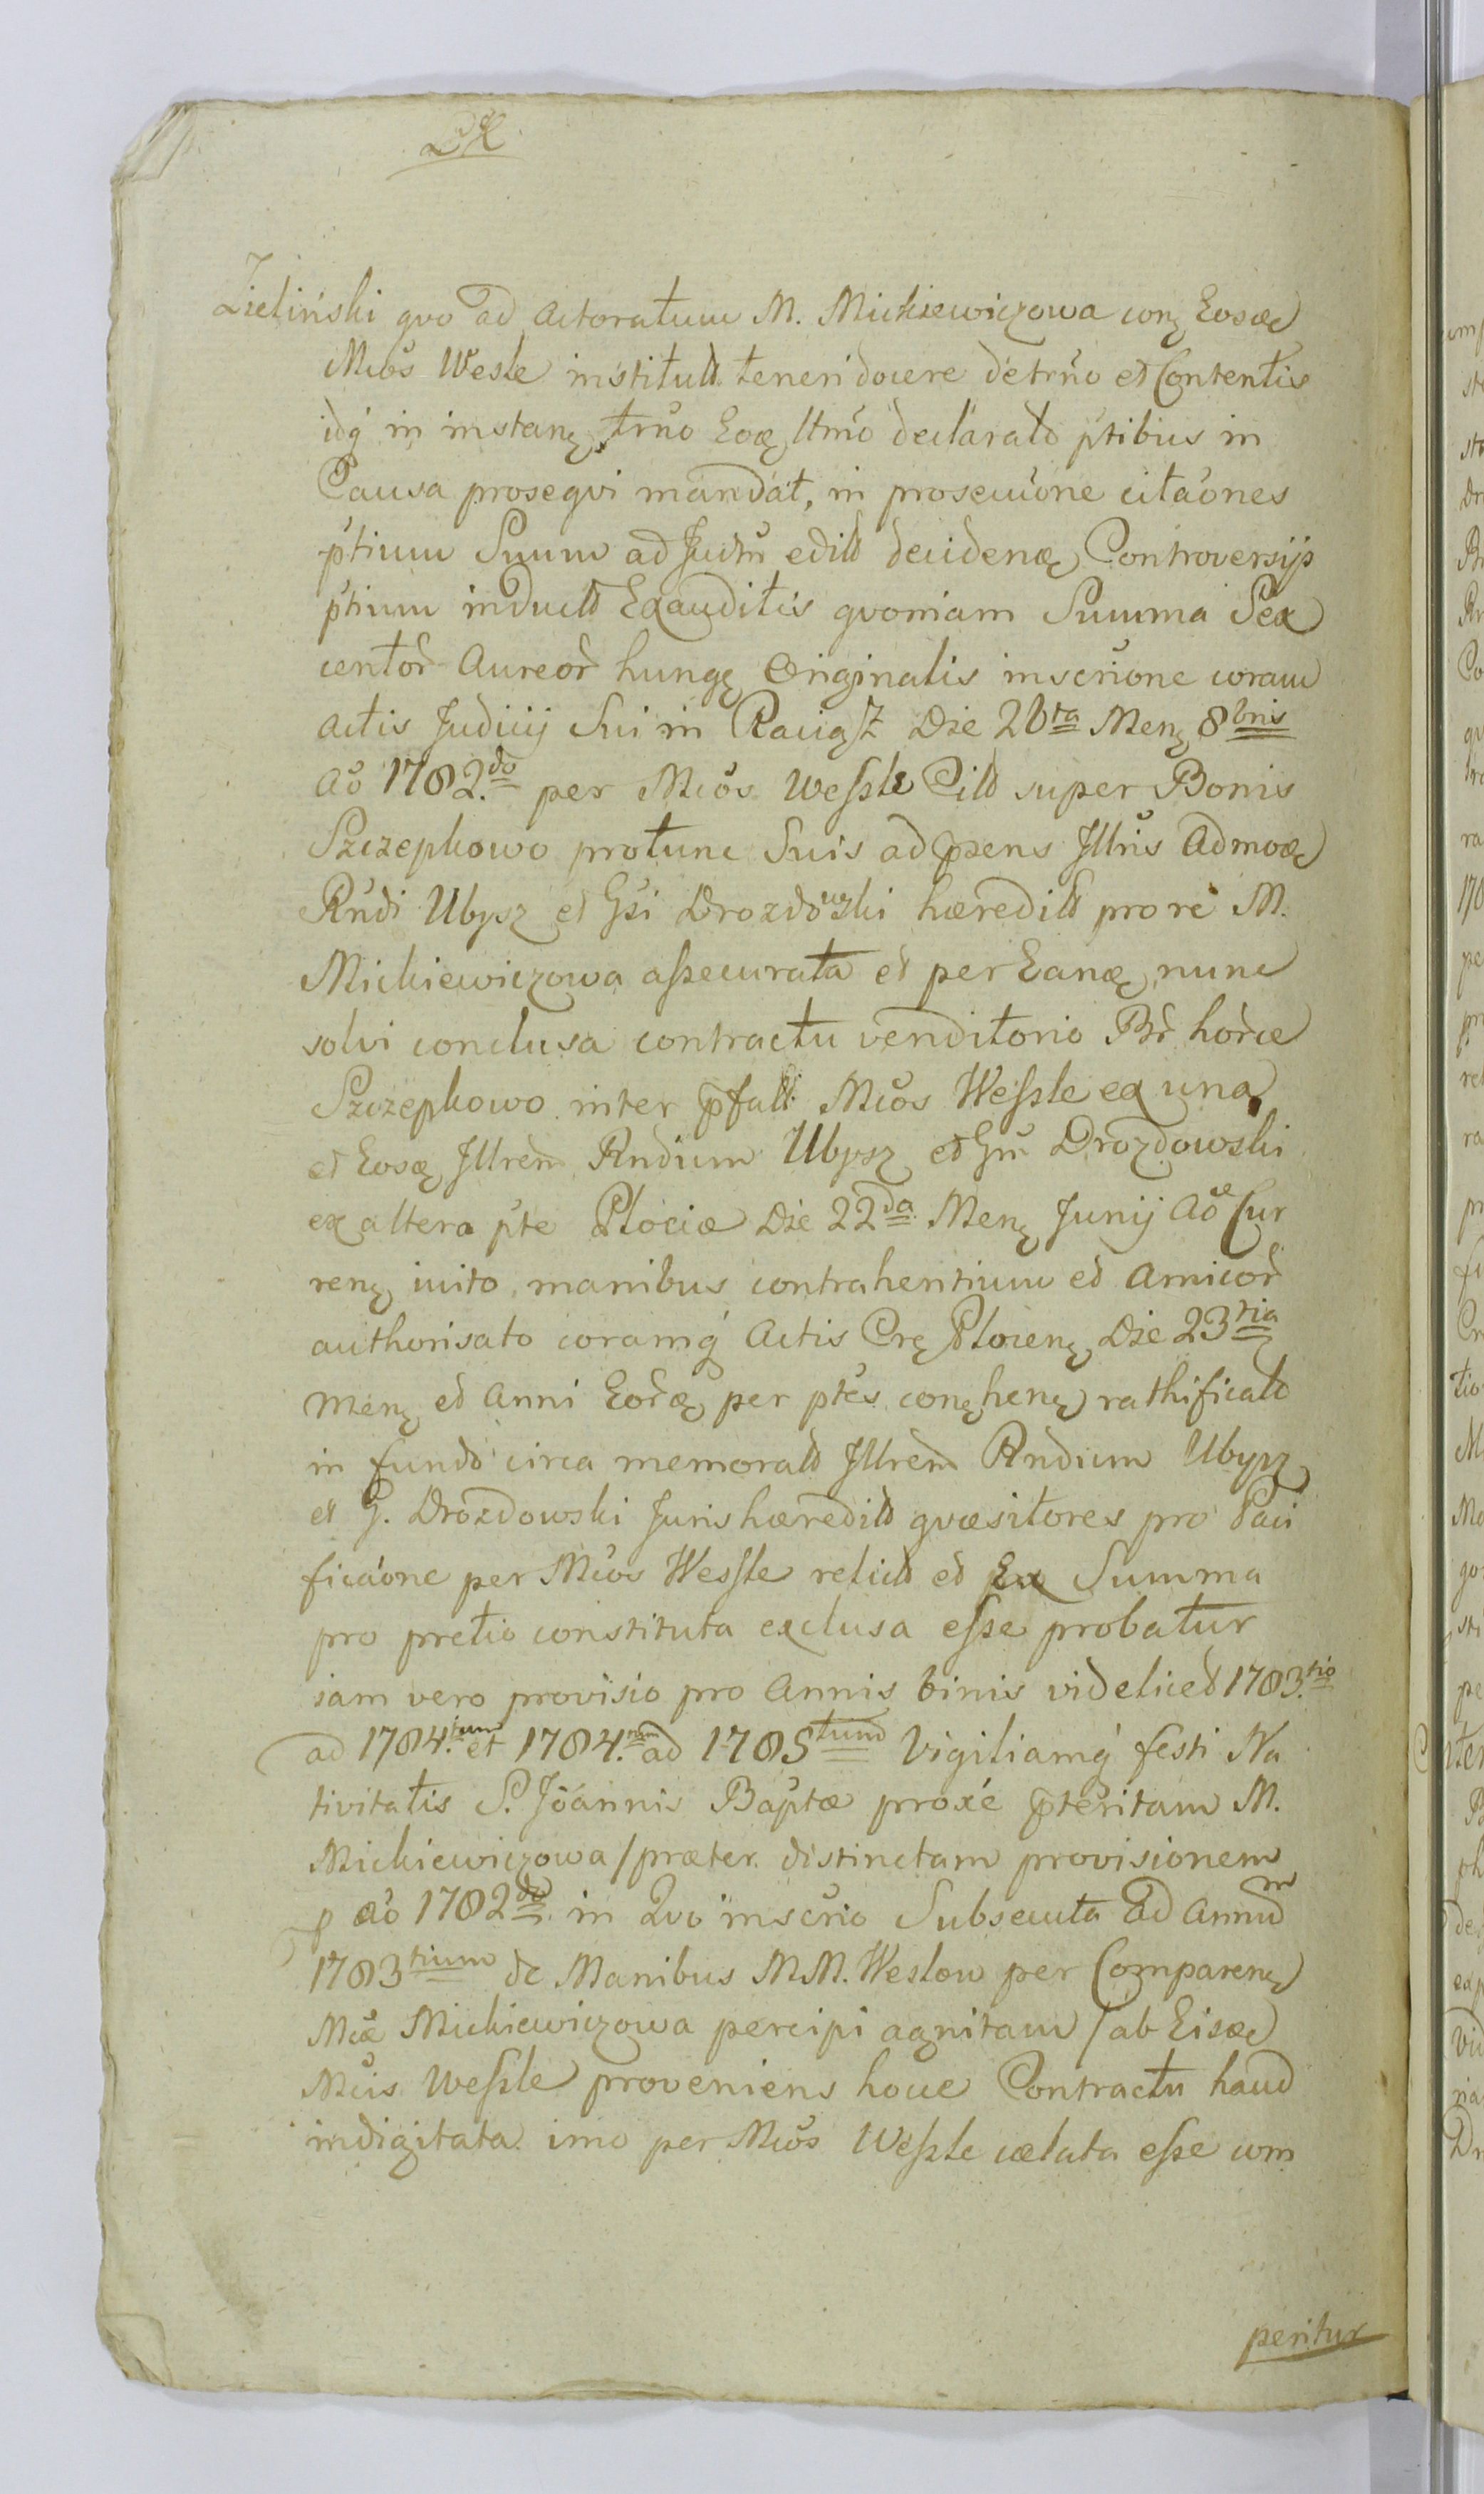 Zieliński qvo ad Actoratum M. Mickiewiczowa conq Eosdę
Mcos Wesle institutt teneri docere detrno et Contentis
idq́ in instanę trno Eoq ltmo declarato ptibus in
Causa proseqvi mandat, in prosecuone citaones
ptium Suum ad Judm edito decidenę Controversijs
ptium inducto Exauditis qvoniam Summa Sex
centor Aureor hungę Originalis inscrione coram
Actis Judicij Sui in Raciąż Die 26ta Menę 8bris
Ao 1782do per Mcos Wessle super Bonis
Szczepkowo protunc Suis ad psens Illris Admodę
Rndi Ubysz et Gsi Drozdowski hæredito pro re M.
Mickiewiczowa assecurata et per Eandę nunc
solvi conclusa contractu venditorio Br horce
Szczepkowo inter pfatt Mcos Wessle ex una
et Eosdę Illrem Rndium Ubysz et Gm Drozdowski
ex altera pte Plociæ Die 22da Menę Junij Ao Cur
renę inito, manibus contrahentium et Amicor
authorisato coramq́ Actis Crę Plocenę Die 23tia
Menę et Anni Eordę per ptes conęhenę rathificato
in fundo circa memorato Illrem Rndium Ubysz
et G. Drozdowski Juris hæredito qvæsitores pro Paci
ficaone per Mcos Wessle relicto et Ex Summa
pro pretio constituta exclusa esse probatur
iam vero provisio pro Annis binis videlicet 1783tio
ad 1784tum et 1784to ad 1785tum Vigiliamq́ festi Na
tivitatis S. Joannis Baptæ proxe pteritam M.
Mickiewiczowa /præter distinctam provisionem
p ao 1782do in Qvo inscrio Subsecuta Ad Annum
1783tium de Manibus MM. Weslow per Comparenę
Mcæ Mickiewiczowa percipi agnitam/ ab Eisdę
Mcis Wessle proveniens hocce Contractu haud
indigitata imo per Mcos Wessle cælata esse com
peritur